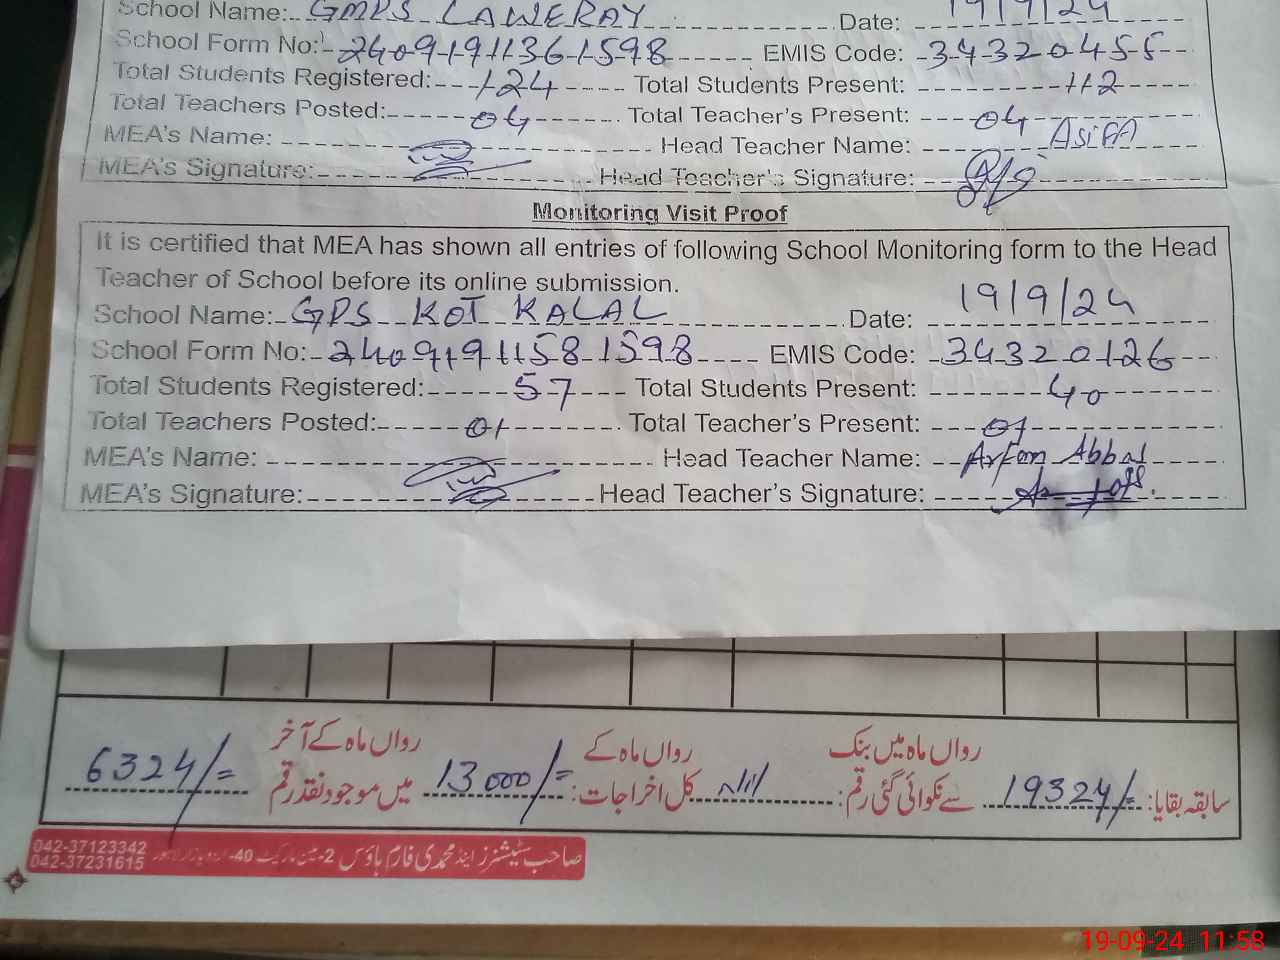 School Name: GMPS LAWERAY Date: 19/9/24
School Form No: 24091911361598 EMIS Code: 34320455
Total Students Registered: 124 Total Students Present: 112
Total Teachers Posted: 04 Total Teacher's Present: 04
MEA's Name: Head Teacher Name: ASifA
MEA's Signature: Head Teacher's Signature:
Monitoring Visit Proof
It is certified that MEA has shown all entries of following School Monitoring form to the Head
Teacher of School before its online submission.
School Name: GPS KOT KALAL Date: 19/9/24
School Form No: 24091911581598 EMIS Code: 34320126
Total Students Registered: 57 Total Students Present: 40
Total Teachers Posted: 01 Total Teacher's Present: 01
MEA's Name: Head Teacher Name: Arfan Abbas
MEA's Signature: Head Teacher's Signature:
رواں ماہ میں بنک رواں ماہ کے رواں ماہ کے آخر
سابقہ بقایا: 19324/= سے نکلوائی گئی رقم: کل اخراجات: 13000/= میں موجود نقد رقم 6324/=
صاحب سٹیشنرز اینڈ محمدی فارم ہاؤس 2- مارکیٹ 40-اردو بازار لاہور 042-37123342
042-37231615
19-09-24 11:58